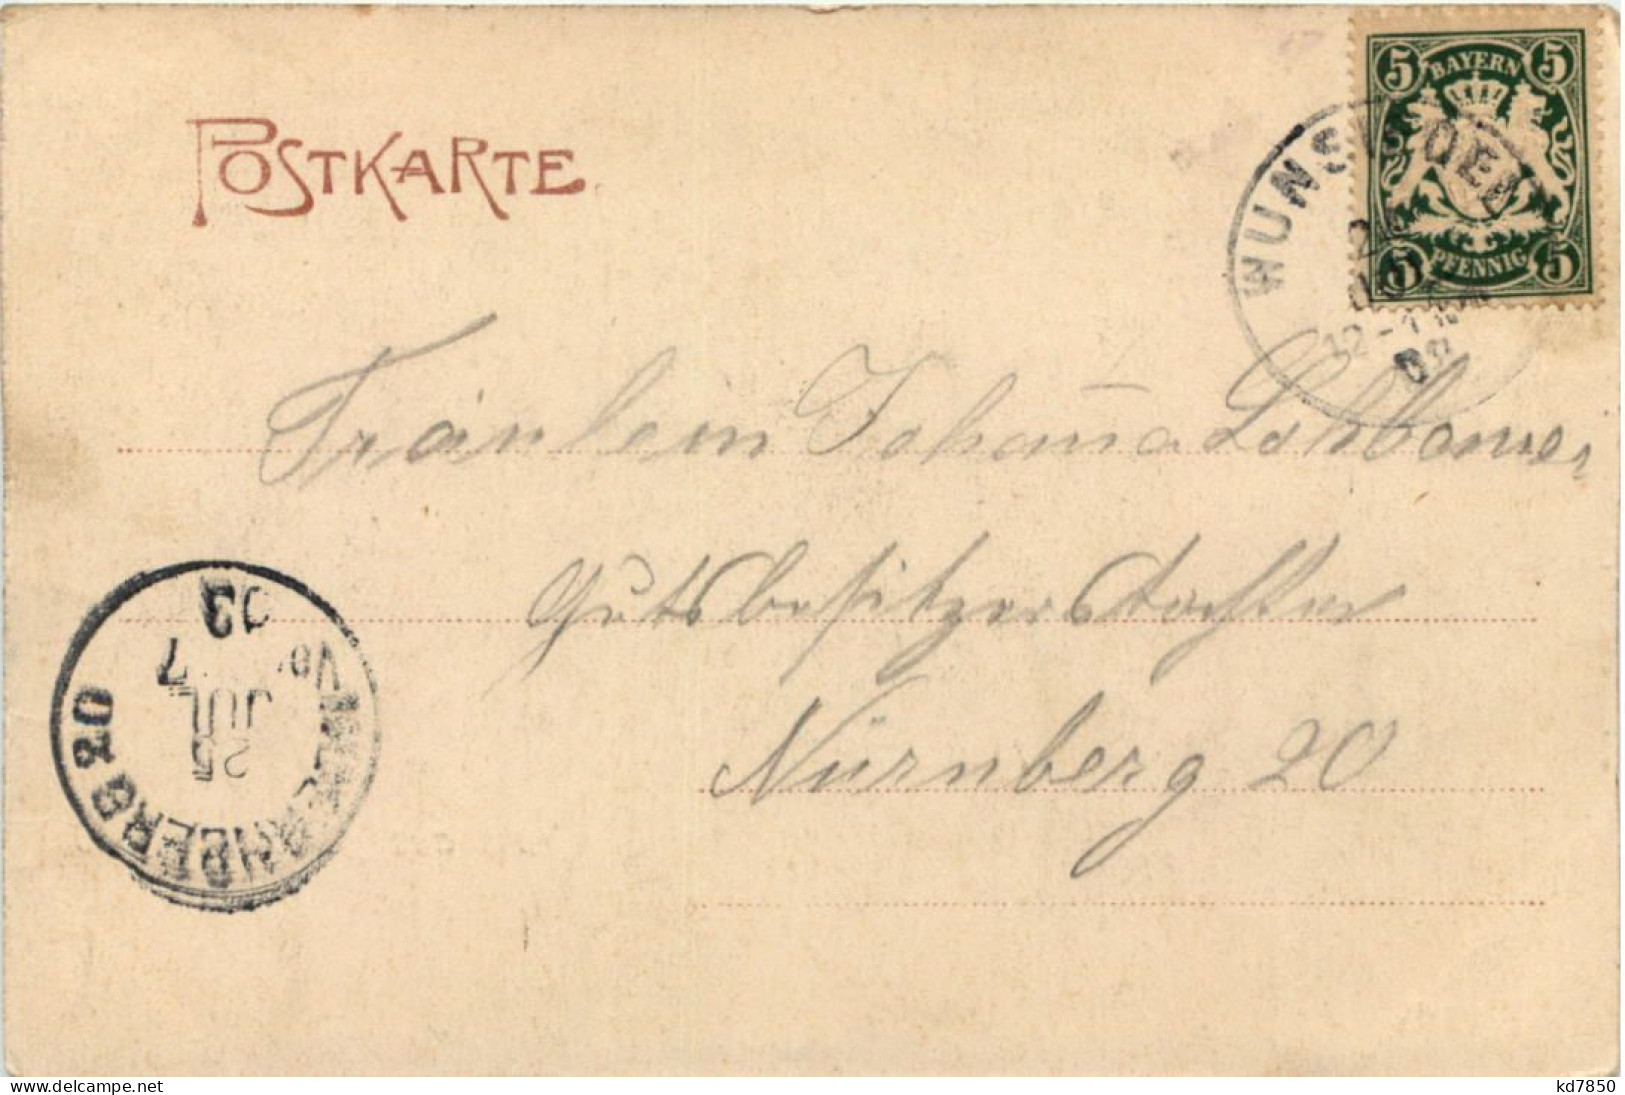 POSTKARTE
5 BAYERN 5
5 PFENNIG 5
WUNSIEDEL
12-1
Fräulein Johanna Lohbauer
Gutsbesitzerstochter
Nürnberg 20
NUERNBERG 20
25
JUL
7
03
kd7850